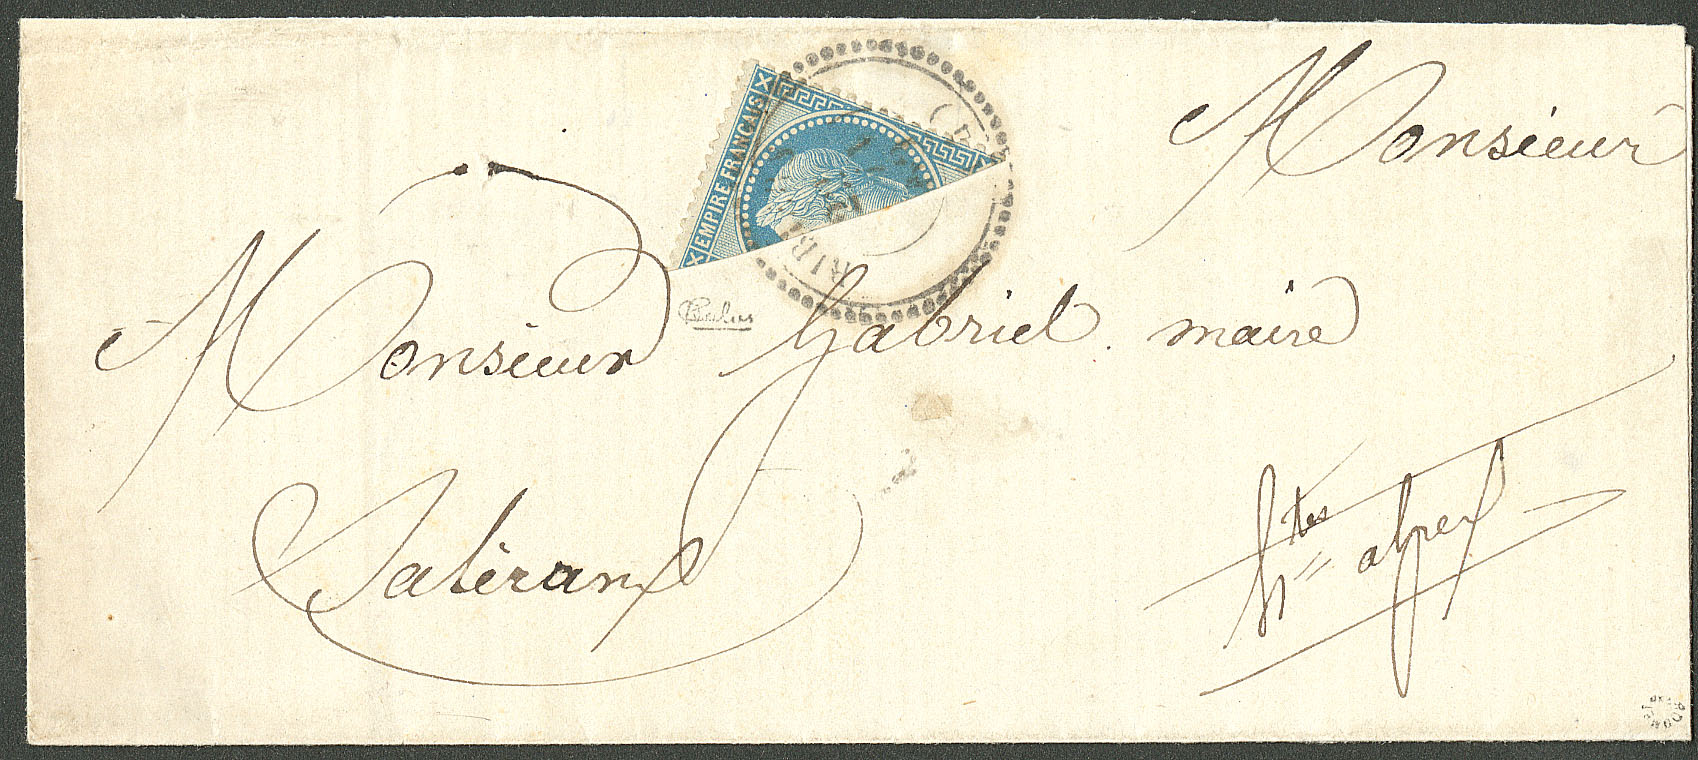 Monsieur
EMPIRE FRANCAIS
Monsieur Gabriel maire
Saléranx
htes alpes